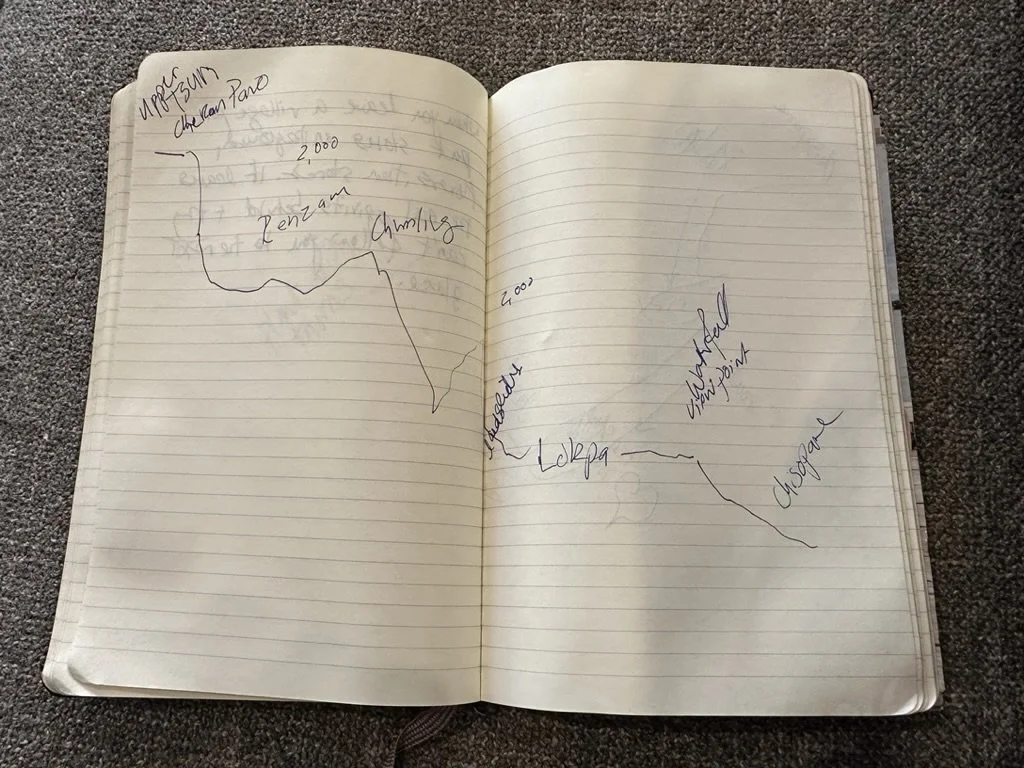 upper
TSUM
Chekam Paro
2,000
Renzam
Chumling
2,000
Landslide
Lokpa
Waterfall
viewpoint
Chisopane